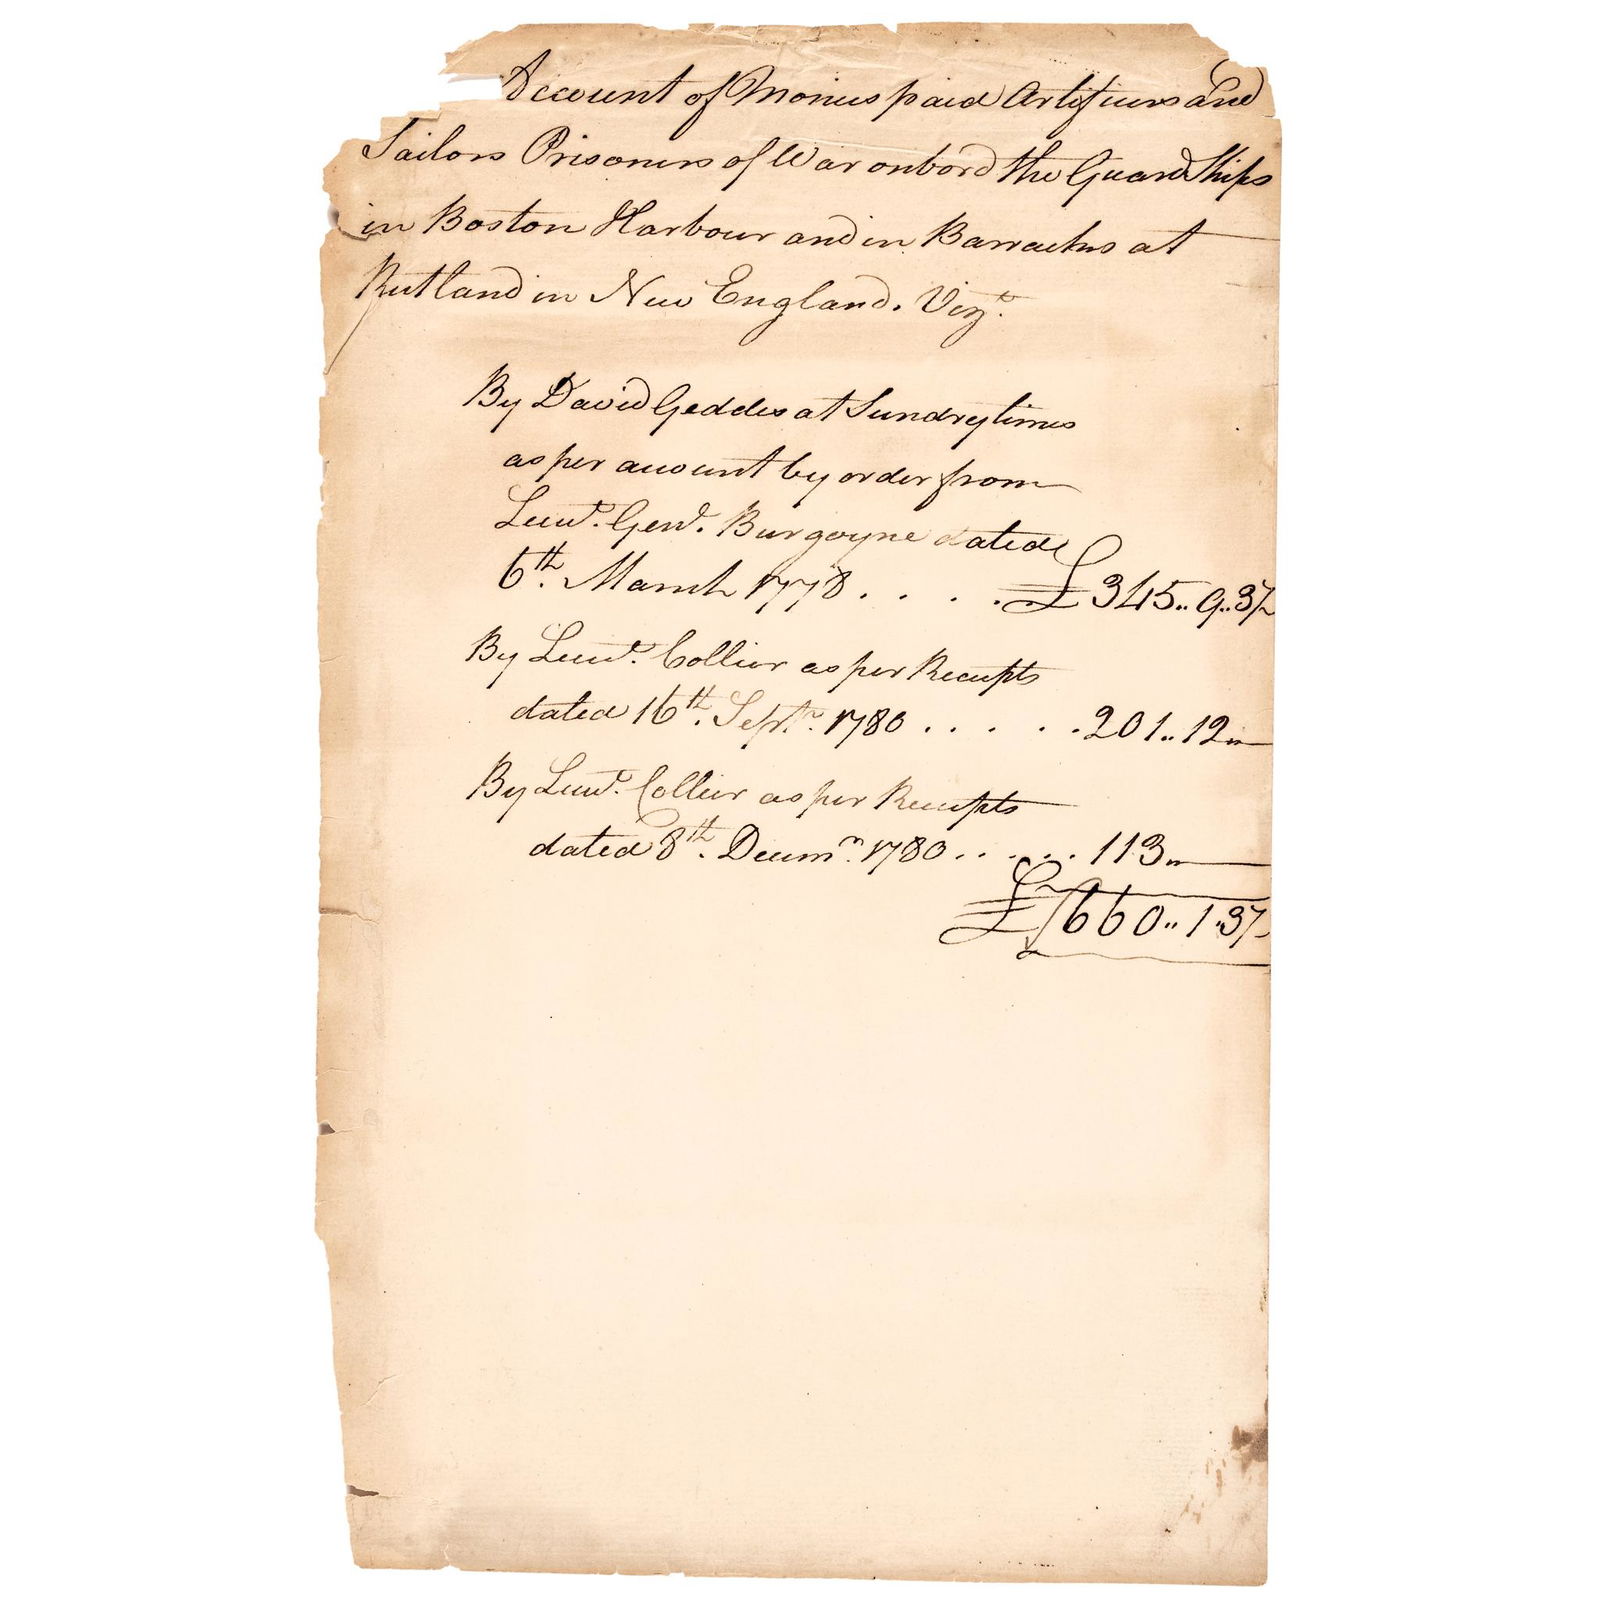 Account of Monies paid Artificers and
Sailors Prisoners of War onbord the Guard Ships
in Boston Harbour and in Barracks at
Rutland in New England. Vizt.
By David Geddes at Sundry times
as per account by order from
Lieut. Genl. Burgoyne dated
6th. March 1778 . . . . £345..9..3½
By Lieut. Collier as per Receipts
dated 16th. Septr. 1780 . . . . . 201..12..—
By Lieut. Collier as per Receipts
dated 8th. Decemr. 1780 . . . . . 113..—
£660..1..3½